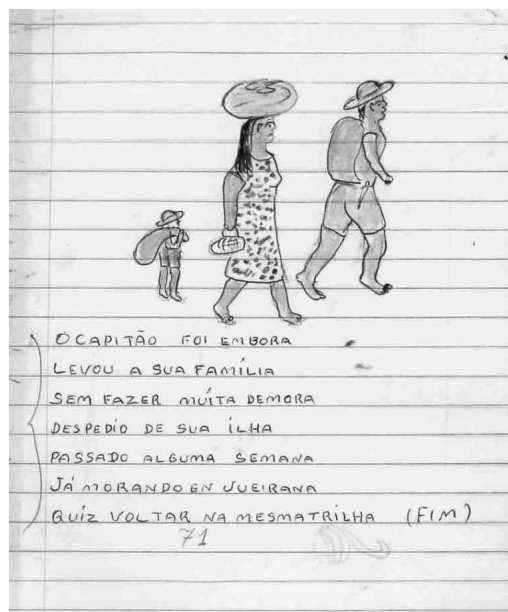 O CAPITÃO FOI EMBORA
LEVOU A SUA FAMÍLIA
SEM FAZER MUÍTA DEMORA
DESPEDIO DE SUA ÍLHA
PASSADO ALGUMA SEMANA
JÁ MORANDO EN JUEIRANA
QUIZ VOLTAR NA MESMATRILHA (FIM)
71